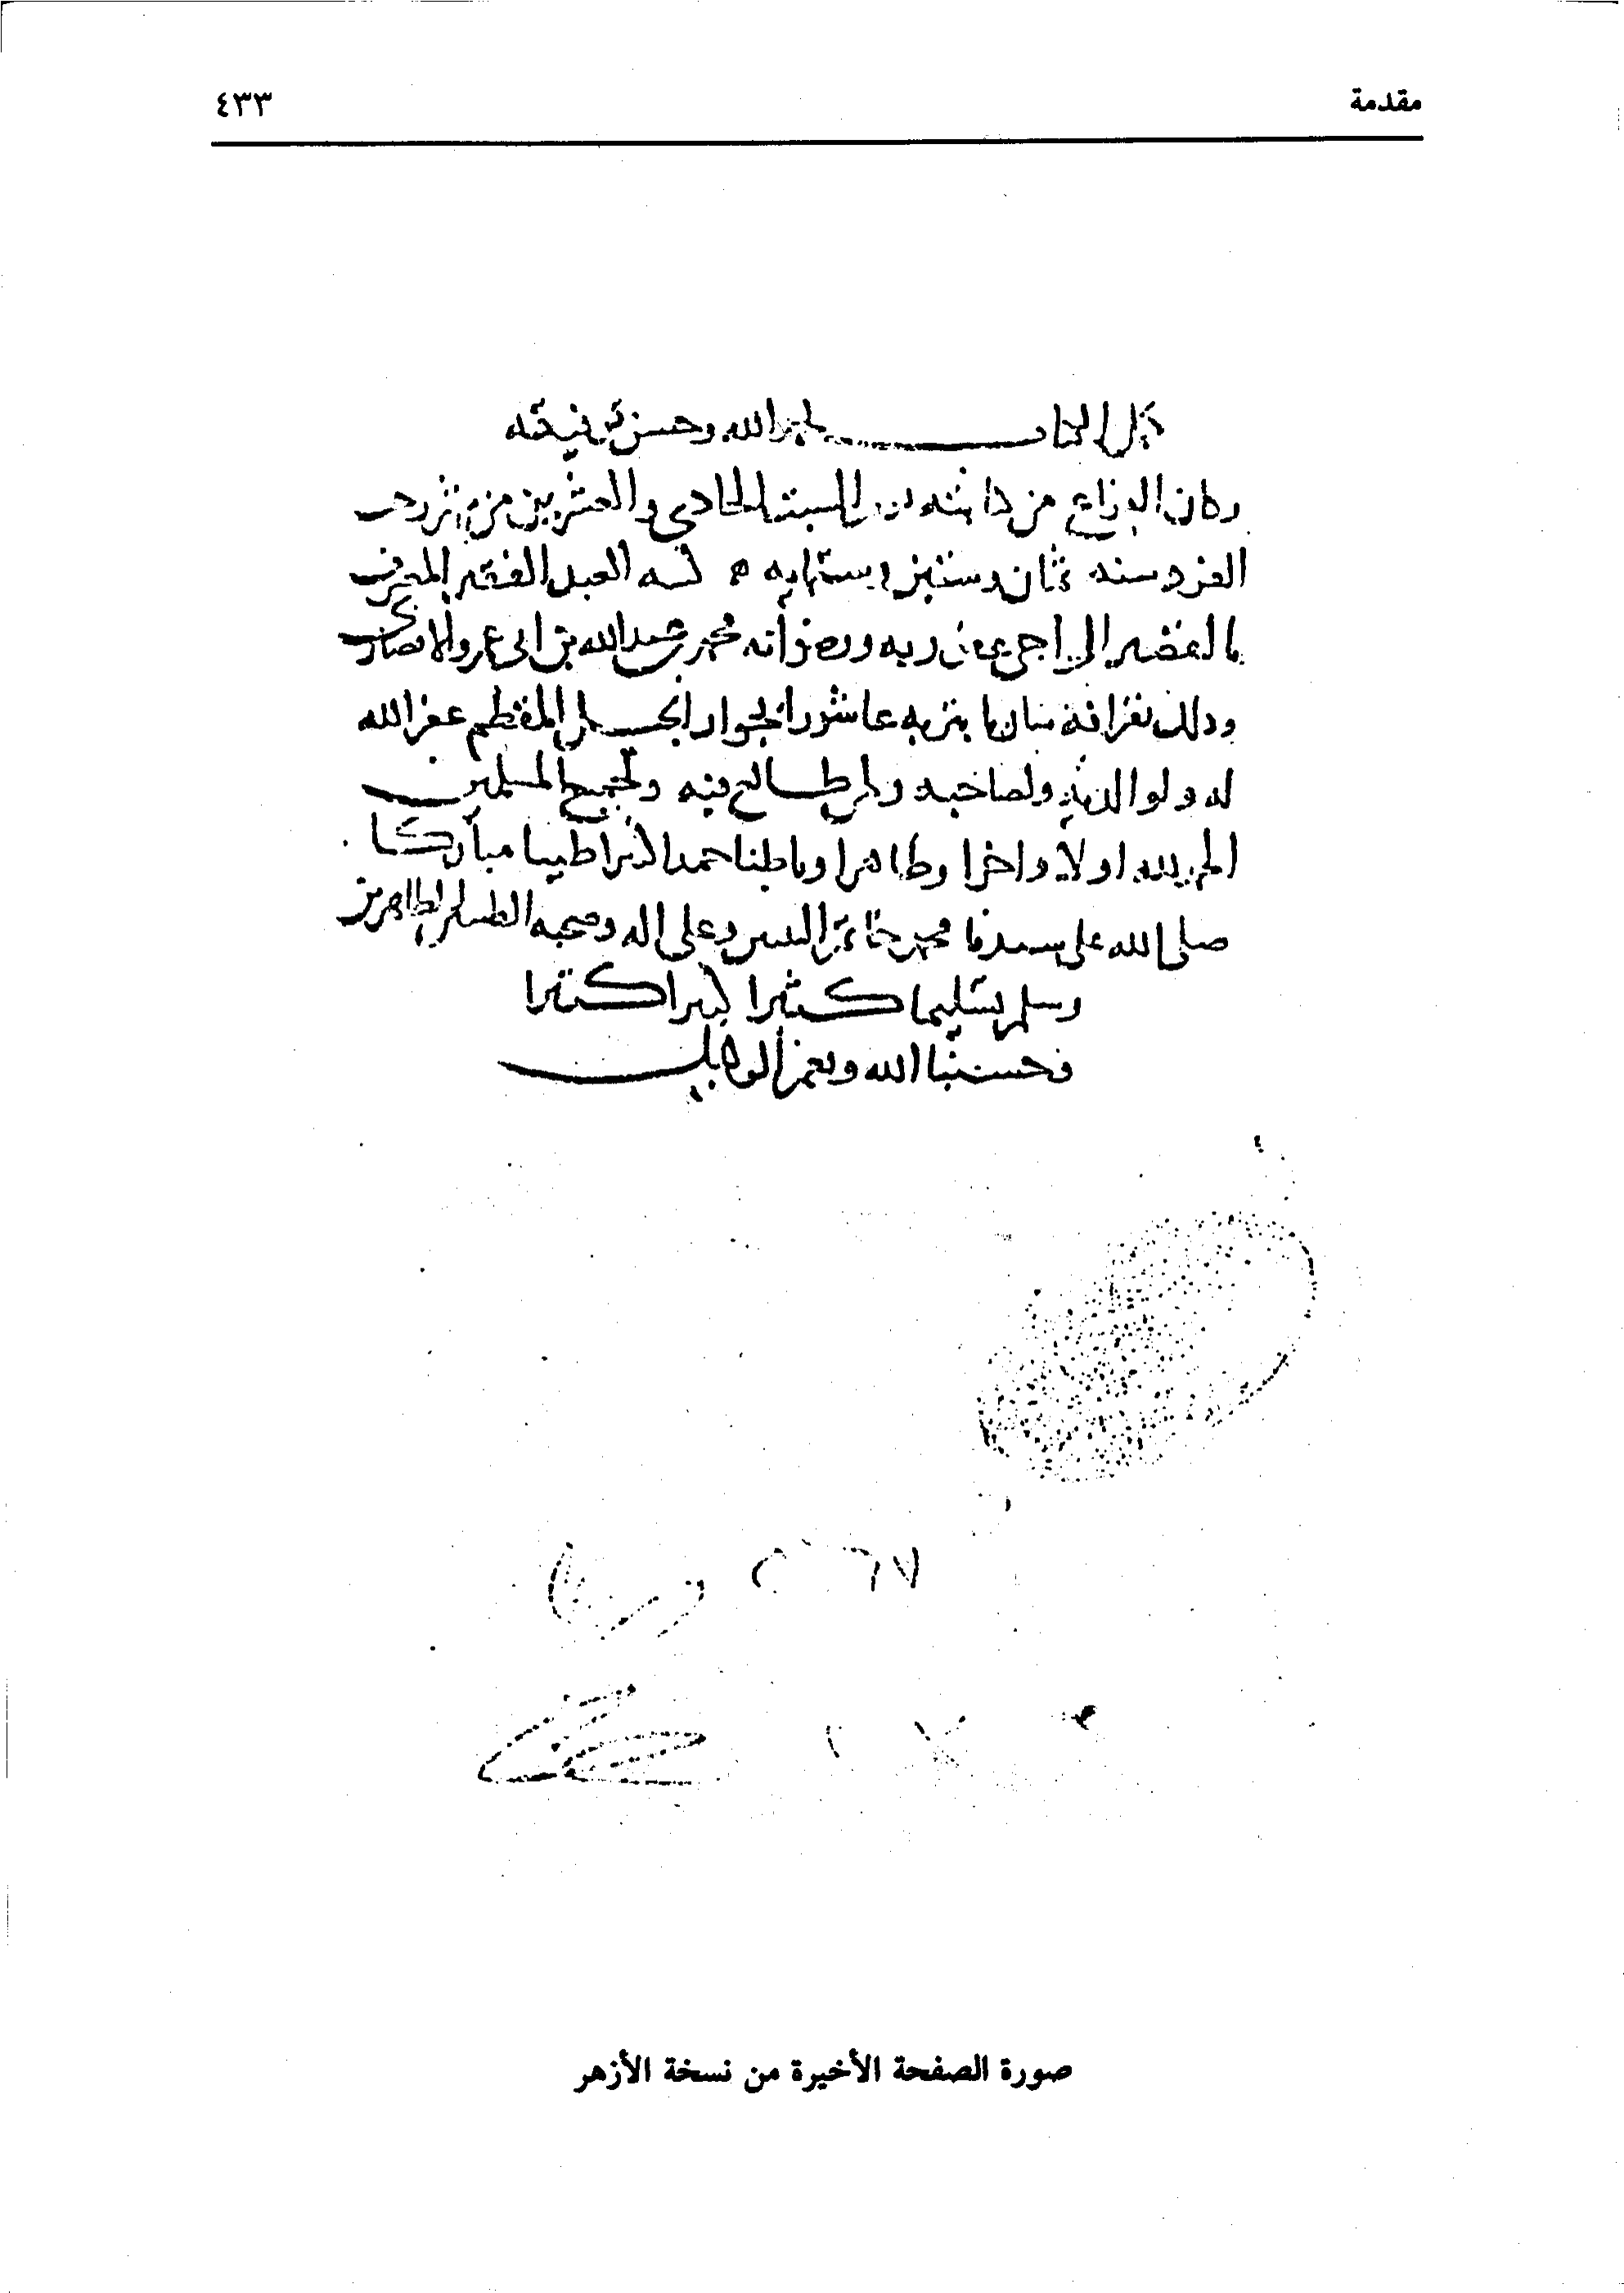 مقدمة
٤٣٣
كمل الكتاب بحمد الله وحسن توفيقه
وكان الفراغ من كتابته السبت الحادي والعشرين من شهر رجب
الفرد سنه ثمان وستين وستمايه ه كتبه العبد الفقير المعترف
بالتقصير الراجي عفو ربه ورضوانه محمد بن عبد الله بن ابي عمرو الانصاري
وذلك بقرافة عاشورا بجوار الجبل المقطم غفر الله
له ولوالديه ولصاحبه ولمن طالع فيه ولجميع المسلمين
الحمد لله اولا واخرا وظاهرا وباطنا حمدا كثيرا طيبا مباركا
صلى الله على سيدنا محمد خاتم النبيين وعلى اله وصحبه الطيبين الطاهرين
وسلم تسليما كثيرا كثيرا كثيرا
وحسبنا الله ونعم الوكيل
صورة الصفحة الأخيرة من نسخة الأزهر